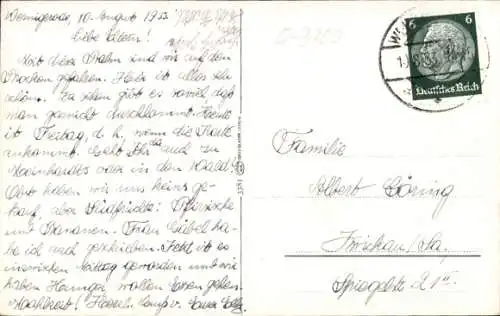 Wernigerode, 10. August 193
Liebe Eltern!
Mit der Bahn sind wir auf den
Brocken gefahren. Hier ist alles sehr
schön. Zu sehen gibt es soviel, daß
man garnicht durchkommt. Heute
ist Freitag, d. h. wenn die Karte
ankommt. Geht Ihr da auch zu
oder in den Wald?
Obst haben wir uns keins ge-
kauft, aber Südfrüchte: Pfirsische
und Bananen. Frau Göbel ha-
be ich auch geschrieben. Jetzt ist es
inzwischen Mittag geworden und wir
haben Hunger, wollen Essen gehen.
Mahlzeit! Herzl.
6 6
Deutsches Reich
Familie
Albert Göring
Zwickau/Sa.
Spiegelstr. 21